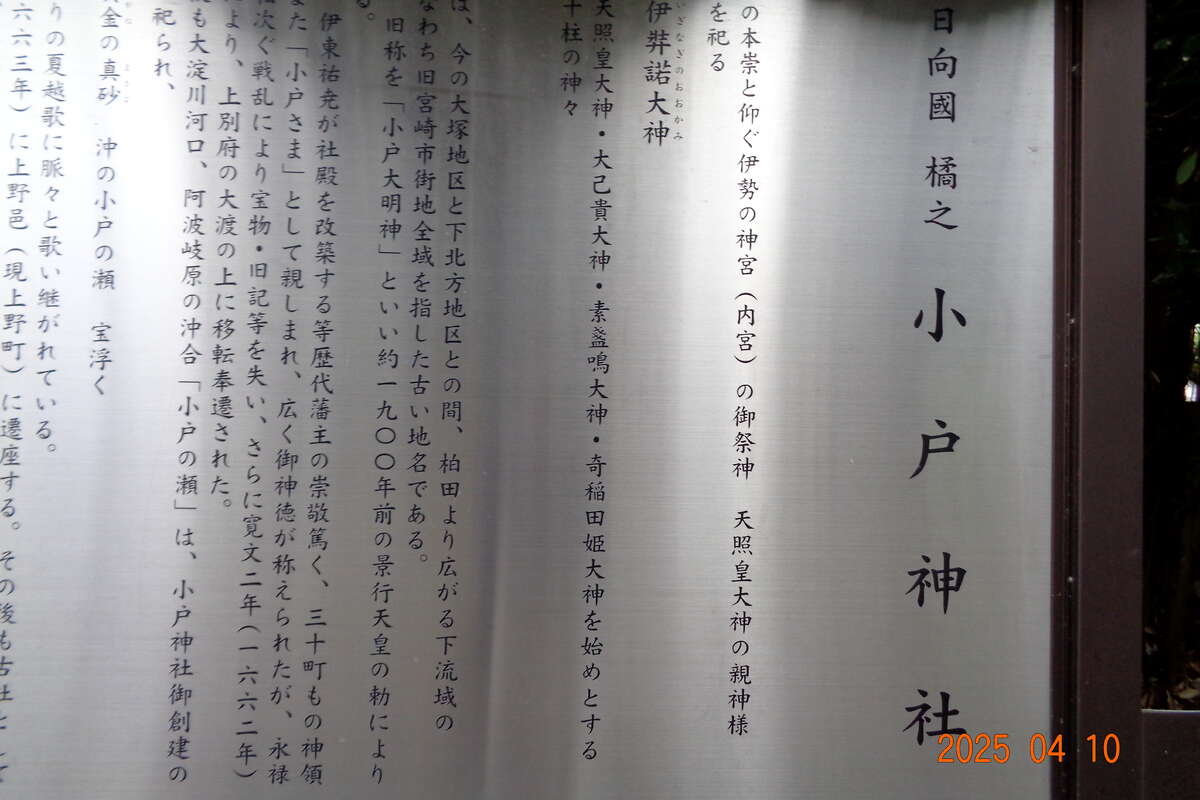 日向國 橘之 小戸神社
の本崇と仰ぐ伊勢の神宮(内宮)の御祭神 天照皇大神の親神様
を祀る
いざなぎのおおかみ
伊弉諾大神
天照皇大神・大己貴大神・素盞嗚大神・奇稲田姫大神を始めとする
十柱の神々
は、今の大塚地区と下北方地区との間、柏田より広がる下流域の
なわち旧宮崎市街地全域を指した古い地名である。
旧称を「小戸大明神」といい約一九〇〇年前の景行天皇の勅により
る。
伊東祐尭が社殿を改築する等歴代藩主の崇敬篤く、三十町もの神領
また「小戸さま」として親しまれ、広く御神徳が称えられたが、永禄
相次ぐ戦乱により宝物・旧記等を失い、さらに寛文二年(一六六二年)
により、上別府の大渡の上に移転奉遷された。
も大淀川河口、阿波岐原の沖合「小戸の瀬」は、小戸神社御創建の
祀られ、
黄金の真砂 沖の小戸の瀬 宝浮く
りの夏越歌に脈々と歌い継がれている。
六六三年)に上野邑(現上野町)に遷座する。その後も古社として
2025 04 10